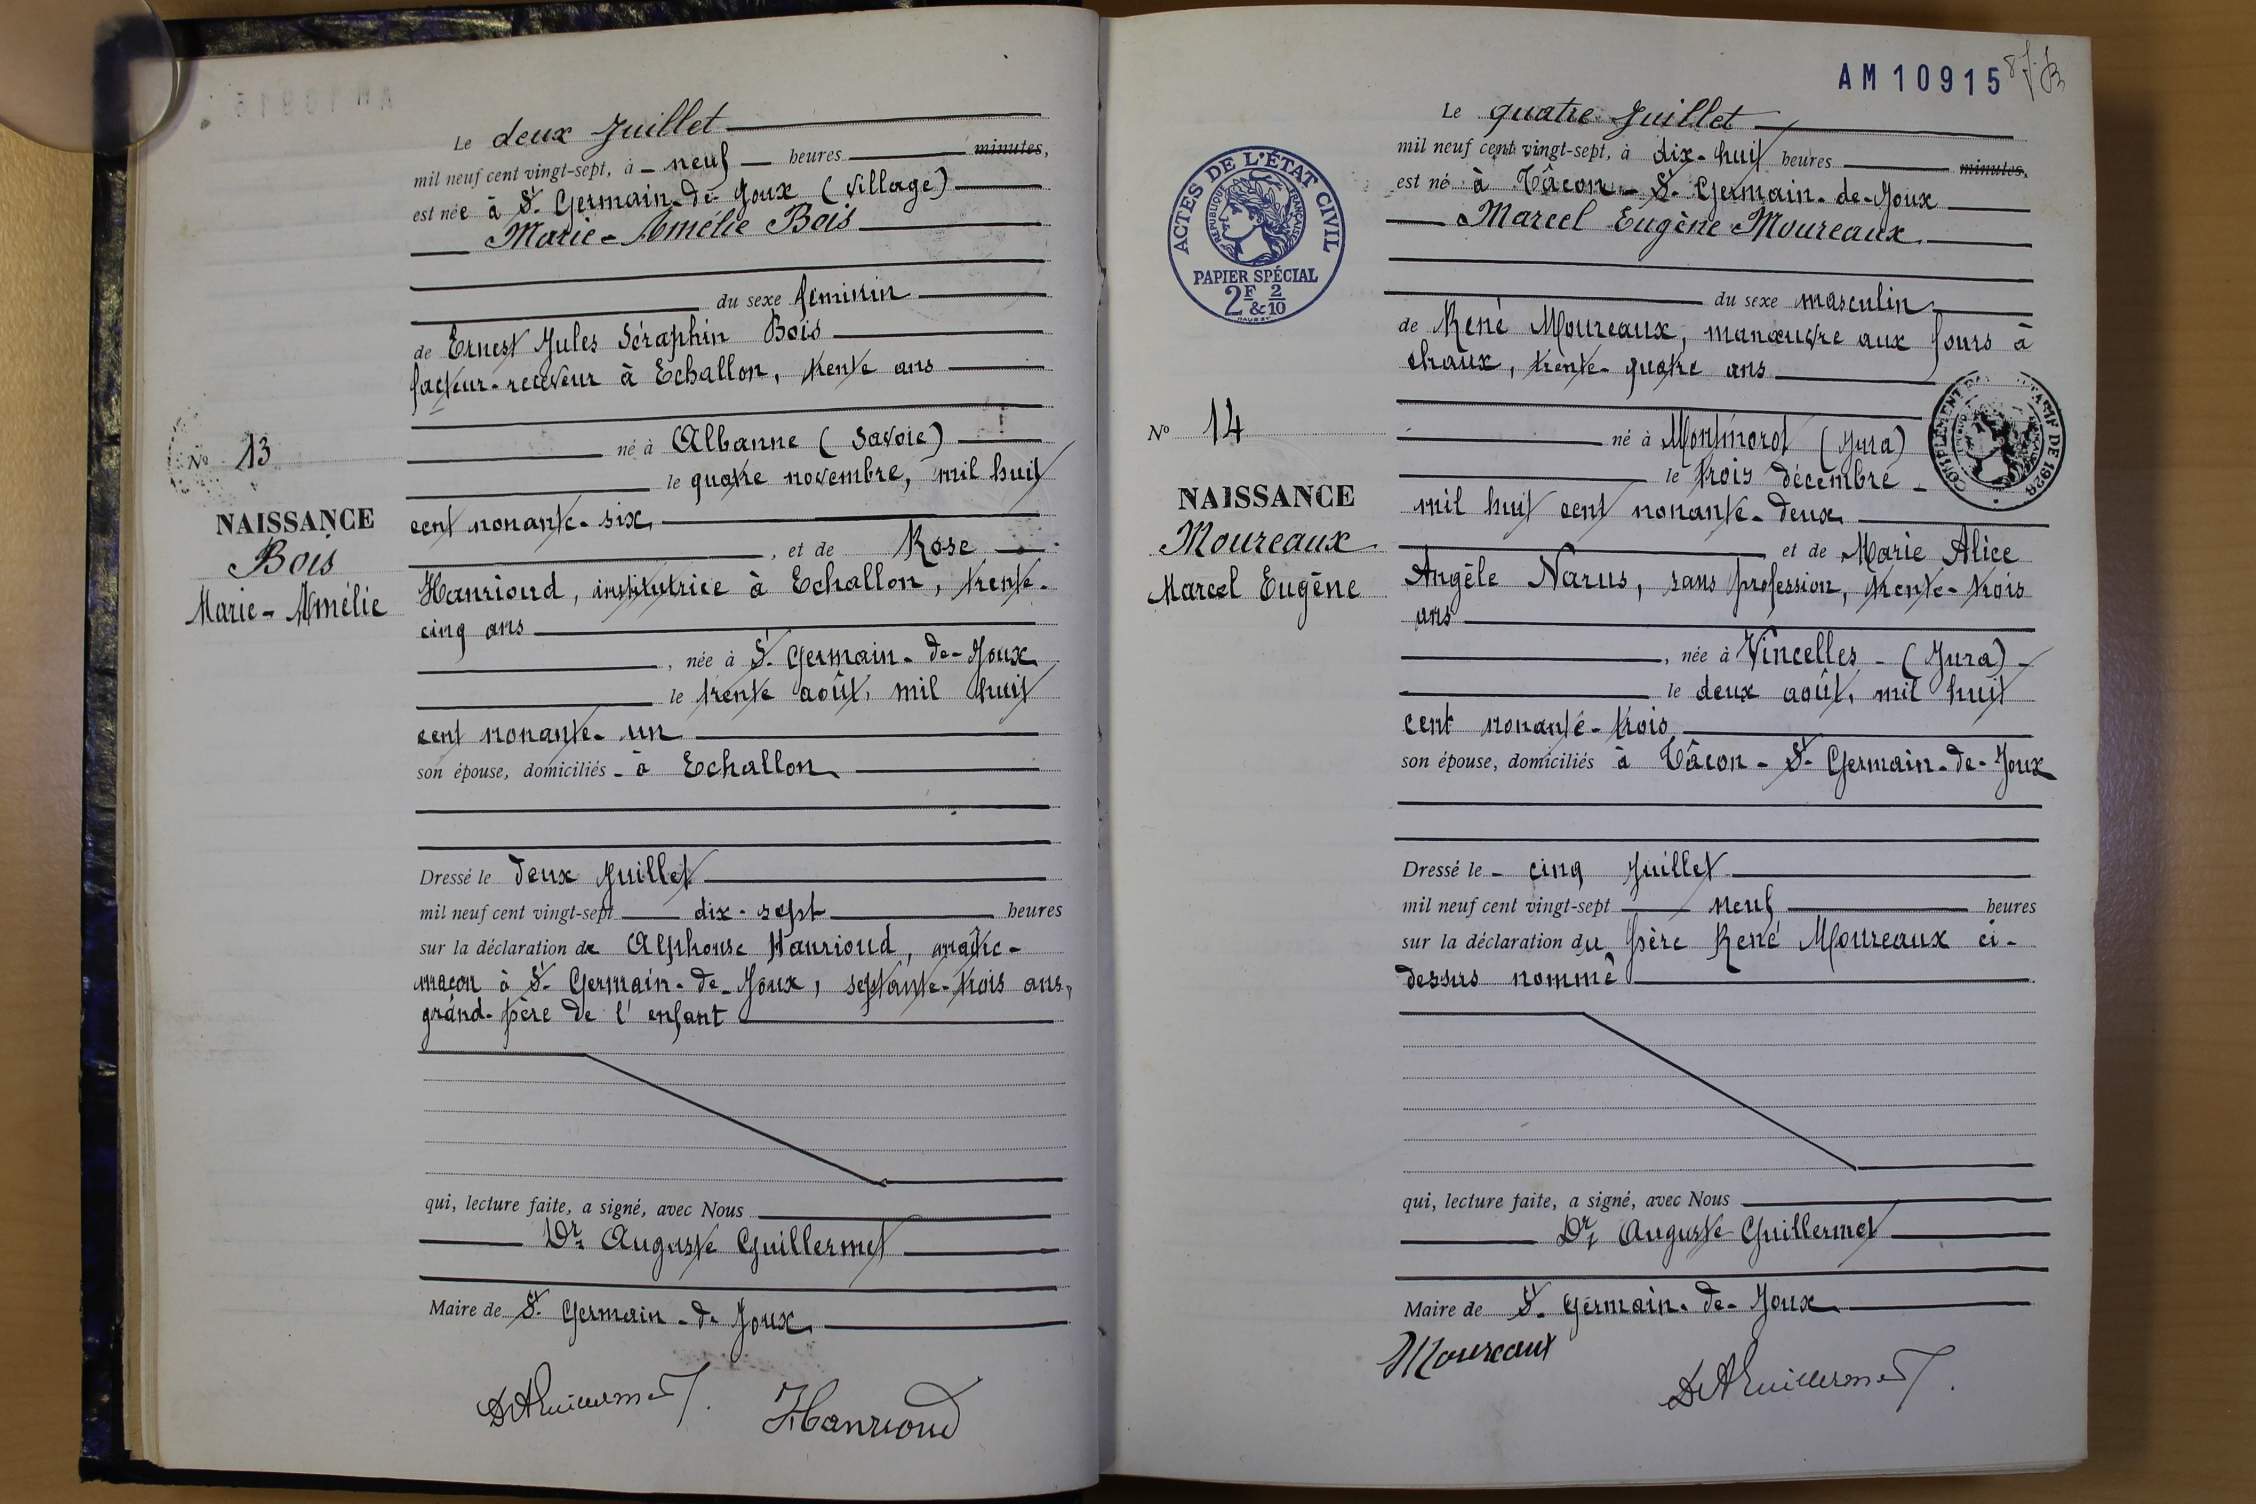 Le deux Juillet
mil neuf cent vingt-sept, à neuf heures minutes,
est née à St. Germain-de-Joux (Village)
Marie-Amélie Bois
du sexe féminin
de Ernest Jules Séraphin Bois
facteur-receveur à Echallon, trente ans
né à Albanne (Savoie)
le quatre novembre, mil huit
cent nonante-six
, et de Rose
Hanrioud, institutrice à Echallon, trente-
cinq ans
, née à St. Germain-de-Joux
le trente août, mil huit
cent nonante-un
son épouse, domiciliés à Echallon
Dressé le deux Juillet
mil neuf cent vingt-sept dix-sept heures
sur la déclaration de Alphonse Hanrioud, maître-
maçon à St. Germain-de-Joux, septante-trois ans,
grand-père de l'enfant
qui, lecture faite, a signé, avec Nous
Dr. Auguste Guillermet
Maire de St. Germain-de-Joux
DrAGuillermet. Hanrioud
No 13
NAISSANCE
Bois
Marie-Amélie
AM 10915
Le quatre Juillet
mil neuf cent vingt-sept, à dix-huit heures minutes,
est né à Tâcon-St. Germain-de-Joux
Marcel Eugène Moureaux
du sexe masculin
de René Moureaux, manœuvre aux fours à
chaux, trente-quatre ans
né à Montmorot (Jura)
le trois décembre
mil huit cent nonante-deux
et de Marie Alice
Angèle Narus, sans profession, trente-trois
ans
, née à Vincelles (Jura)
le deux août, mil huit
cent nonante-trois
son épouse, domiciliés à Tâcon-St. Germain-de-Joux
Dressé le cinq Juillet
mil neuf cent vingt-sept neuf heures
sur la déclaration du père René Moureaux ci-
dessus nommé
qui, lecture faite, a signé, avec Nous
Dr. Auguste Guillermet
Maire de St. Germain-de-Joux
Moureaux
DrAGuillermet.
ACTES DE L'ÉTAT CIVIL
RÉPUBLIQUE FRANÇAISE
PAPIER SPÉCIAL
2F & 2/10
No 14
NAISSANCE
Moureaux
Marcel Eugène